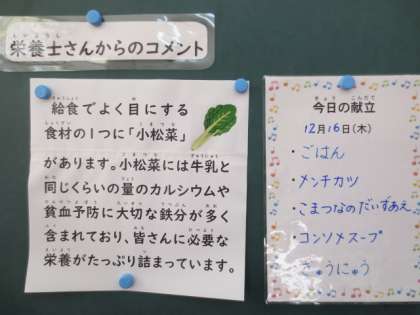 栄養士さんからのコメント
給食でよく目にする
食材の1つに「小松菜」
があります。小松菜には牛乳と
同じくらいの量のカルシウムや
貧血予防に大切な鉄分が多く
含まれており、皆さんに必要な
栄養がたっぷり詰まっています。
今日の献立
12月16日(木)
・ごはん
・メンチカツ
・こまつなのだいずあえ
・コンソメスープ
・ぎゅうにゅう